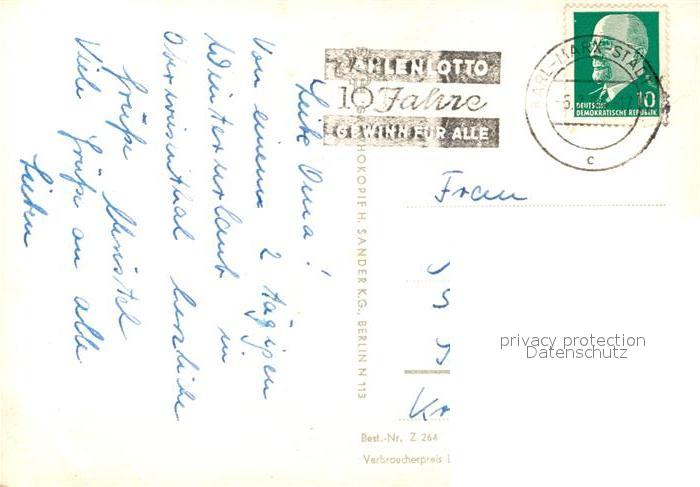 Liebe Oma!
Von einem 2 tägigen
Winterurlaub in
Oberwiesenthal herzliche
Grüße Christel
Viele Grüße an alle
Lieben
ZAHLENLOTTO
10 Jahre
GEWINN FÜR ALLE
KARL-MARX-STADT
c
10
DEUTSCHE
DEMOKRATISCHE REPUBLIK
Frau
privacy protection
Datenschutz
H. SANDER K.G., BERLIN N 113
Best.-Nr. Z 264
Verbraucherpreis